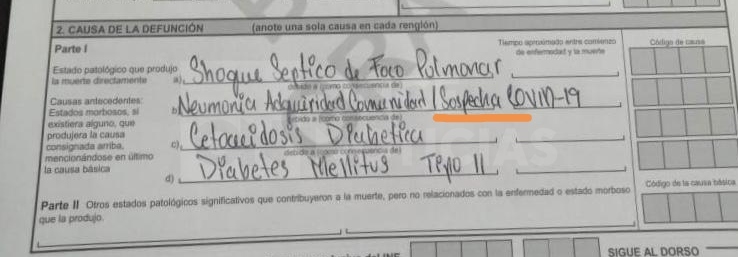 2. CAUSA DE LA DEFUNCIÓN (anote una sola causa en cada renglón)
Parte I
Tiempo aproximado entre comienzo de enfermedad y la muerte
Código de causa
Estado patológico que produjo la muerte directamente
a) Shoque Septico de Foco Pulmonar
debido a (como consecuencia de)
Causas antecedentes:
Estados morbosos, si existiera alguno, que produjera la causa consignada arriba, mencionándose en último la causa básica
Neumonia Adquiridad Comunidad / Sospecha COVID-19
debido a (como consecuencia de)
c) Cetoacidosis Diabetica
debido a (como consecuencia de)
d) Diabetes Mellitus Tipo II
Código de la causa básica
Parte II Otros estados patológicos significativos que contribuyeron a la muerte, pero no relacionados con la enfermedad o estado morboso
que la produjo.
SIGUE AL DORSO